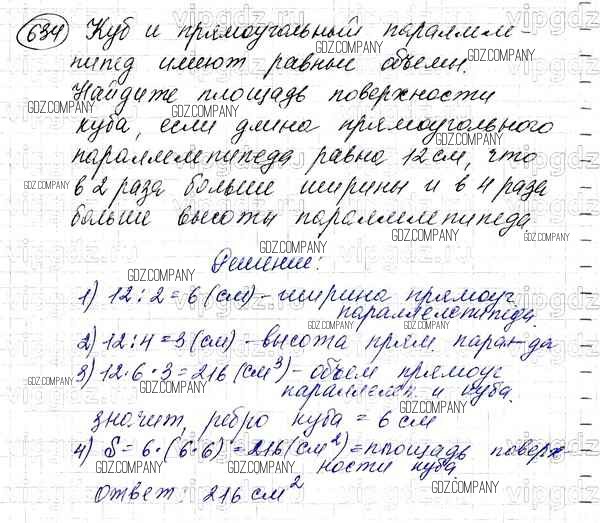 634 Куб и прямоугольный паралле-
пипед имеют равные объемы.
Найдите площадь поверхности
куба, если длина прямоугольного
параллелепипеда равна 12 см, что
в 2 раза больше ширины и в 4 раза
больше высоты параллелепипеда.
Решение:
1) 12 : 2 = 6 (см) - ширина прямоуг.
параллелепипеда.
2) 12 : 4 = 3 (см) - высота прям. парал-да
3) 12 · 6 · 3 = 216 (см³) - объем прямоуг.
параллелеп. и куба.
значит, ребро куба = 6 см
4) S = 6 · (6 · 6) = 216 (см²) = площадь поверх-
ности куба
ответ: 216 см²